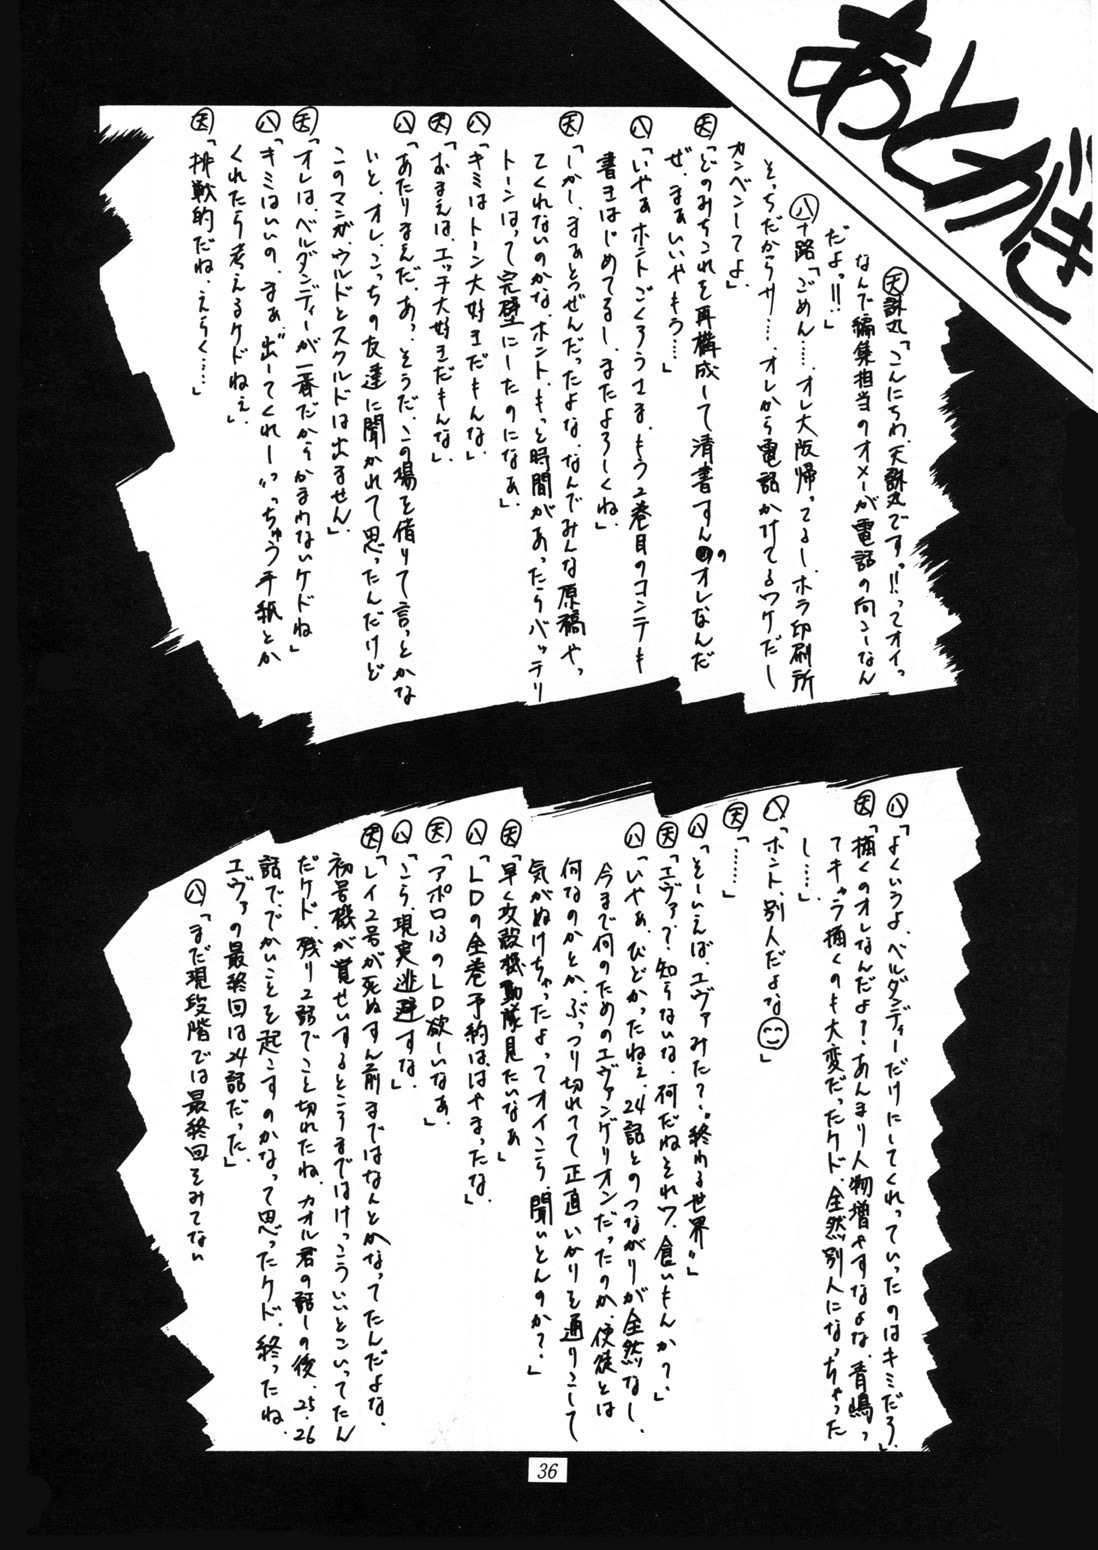 あとがき
㊝天誅丸「こんにちわ、天誅丸ですっ!!ってオイっ
なんで編集担当のオメーが電話の向こーなん
だよっ!!」
八十路「ごめん……オレ大阪帰ってるし、ホラ印刷所
そっちだからサ……、オレから電話かけてるワケだし
カンベンしてよ」
天「どのみちこれを再構成して清書すんのオレなんだ
ぜ、まぁいいやもう……」
八「いやぁホントごくろうさま、もう2巻目のコンテも
書きはじめてるし、またよろしくね」
天「しかし、まぁとうぜんだったよな、なんでみんな原稿やっ
てくれないのかな、ホント、もっと時間があったらバッチリ
トーンはって完璧にしたのになぁ」
八「キミはトーン大好きだもんな」
天「おまえは、エッチ大好きだもんな」
八「あたりまえだ、あっ、そうだ、この場を借りて言っとかな
いと、オレ、こっちの友達に聞かれて思ったんだけど
このマンガ、ウルドとスクルドは出ません」
天「オレは、ベルダンディーが一番だからかまわないケドね」
八「キミはいいの、まぁ"出ーてくれー"っちゅう手紙とか
くれたら考えるケドねぇ」
天「挑戦的だね、えらく……」
八「よくいうよ、ベルダンディーだけにしてくれっていったのはキミだろ」
天「描くのオレなんだよ?あんまり人物増やすなよな、青嶋っ
てキャラ描くのも大変だったケド、全然別人になっちゃった
し……」
八「ホント、別人だよな」
天「……」
八「そーいえば、エヴァみた?"終わる世界"」
天「エヴァ?知らないな、何だねそれワ、食いもんか?」
八「いやぁ、ひどかったねぇ、24話とのつながりが全然なし、
今まで何のためのエヴァンゲリオンだったのか、使徒とは
何なのかとか、ぶっつり切れてて正直いかりを通りこして
気がぬけちゃったよってオイこら、聞いとんのか?」
天「早く攻殻機動隊見たいなぁ」
八「LDの全巻予約は、はやまったな」
天「アポロ13のLD欲しいなぁ」
八「こら、現実逃避すな」
天「レイ2号が死ぬすん前まではなんとかなってたんだよな、
初号機が覚せいするところまではけっこういいとこいってたん
だケド、残り2話でこと切れたね、カオル君の話しの後、25、26
話で、でかいことを起こすのかなって思ったケド、終ったね、
エヴァの最終回は24話だった」
八「まだ現段階では最終回をみてない
36